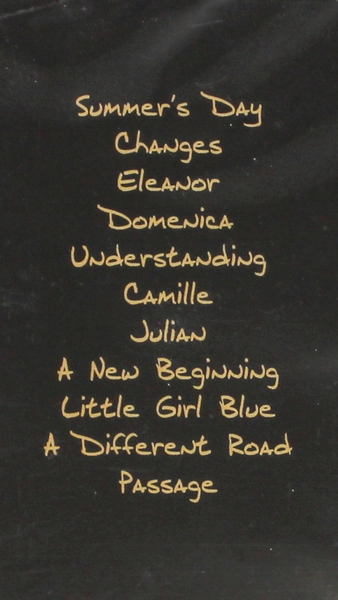 Summer's Day
Changes
Eleanor
Domenica
Understanding
Camille
Julian
A New Beginning
Little Girl Blue
A Different Road
Passage